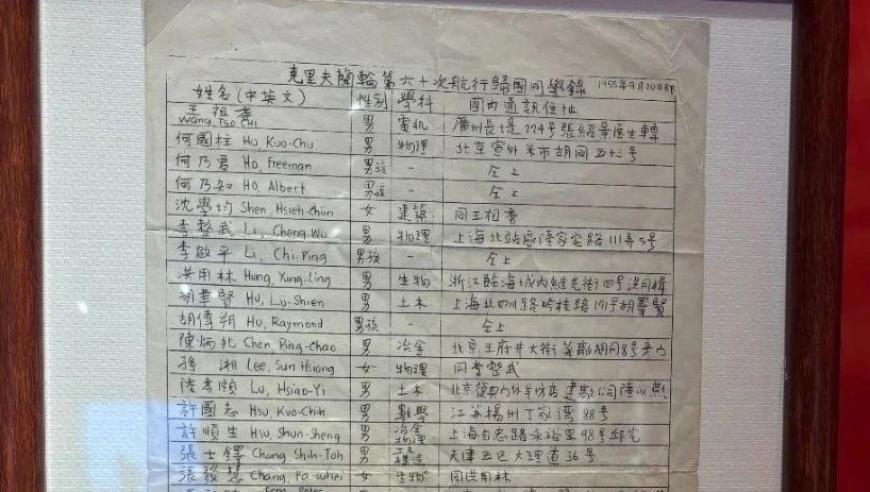 克里夫蘭輪第六十次航行歸國同學錄 1955年9月20日
姓名(中英文) 性别 學科 國内通訊住址
王祖耆 Wang, Tso Chi 男 電机 廣州長堤224号張紹景医生轉
何國柱 Ho, Kuo-Chu 男 物理 北京宣外米市胡同五十三号
何乃君 Ho, Freeman 男孩 - 仝上
何乃知 Ho, Albert 男孩 - 仝上
沈學均 Shen, Hsieh-Chün 女 建築 同王祖耆
李整武 Li, Cheng Wu 男 物理 上海北站 陸家宅路111弄5号
李敏平 Li, Chi-Ping 男孩 - 仝上
洪用林 Hung, Yung-Ling 男 生物 浙江臨海城内继光街四号洪同楫
胡聿賢 Hu, Lü-Shien 男 土木 上海北四川路吟桂路191号胡聿賢
胡傳朔 Hu, Raymond 男孩 - 仝上
陳炳兆 Chen Ping-Chao 男 冶金 北京王府井大街 胡同8号
孫湘 Lee, Sun Hsiang 女 物理 同李整武
陸孝頤 Lu, Hsiao-Yi 男 土木 北京復興门外羊坊店
許國志 Hsu, Kuo-Chih 男 數學 江苏揚州丁家湾88号
許順生 Hsu, Shun-Sheng 男 冶金物理 上海自忠路永裕里98号邱宅
張士鐸 Chang, Shih-Toh 男 天津五區大理道36号
張發慧 Chang, Fa-whei 女 生物 同洪用林